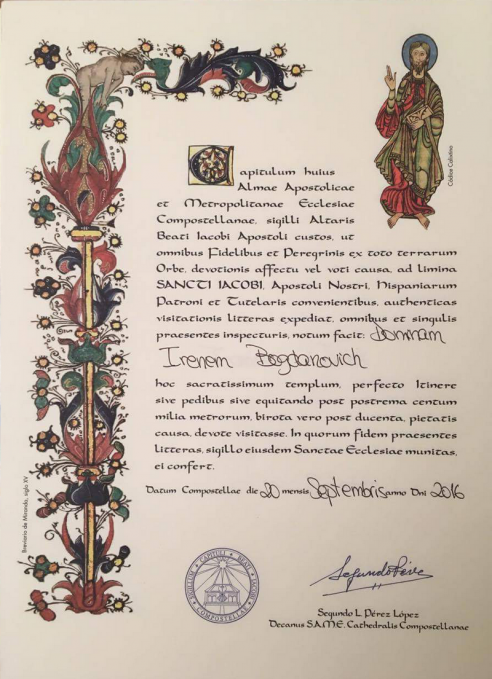 Códice Calixtino
Capitulum huius
Almae Apostolicae
et Metropolitanae Ecclesiae
Compostellanae, sigilli Altaris
Beati Iacobi Apostoli custos, ut
omnibus Fidelibus et Peregrinis ex toto terrarum
Orbe, devotionis affectu vel voti causa, ad limina
SANCTI IACOBI, Apostoli Nostri, Hispaniarum
Patroni et Tutelaris convenientibus, authenticas
visitationis litteras expediat, omnibus et singulis
praesentes inspecturis, notum facit: Domnam
Irenem Bogdanovich
hoc sacratissimum templum, perfecto Itinere
sive pedibus sive equitando post postrema centum
milia metrorum, birota vero post ducenta, pietatis
causa, devote visitasse. In quorum fidem praesentes
litteras, sigillo eiusdem Sanctae Ecclesiae munitas,
ei confert.
Datum Compostellae die 20 mensis Septembris anno Dni 2016
Breviario de Miranda, siglo XV
Segundo L. Pérez López
Decanus S.A.M.E. Cathedralis Compostellanae